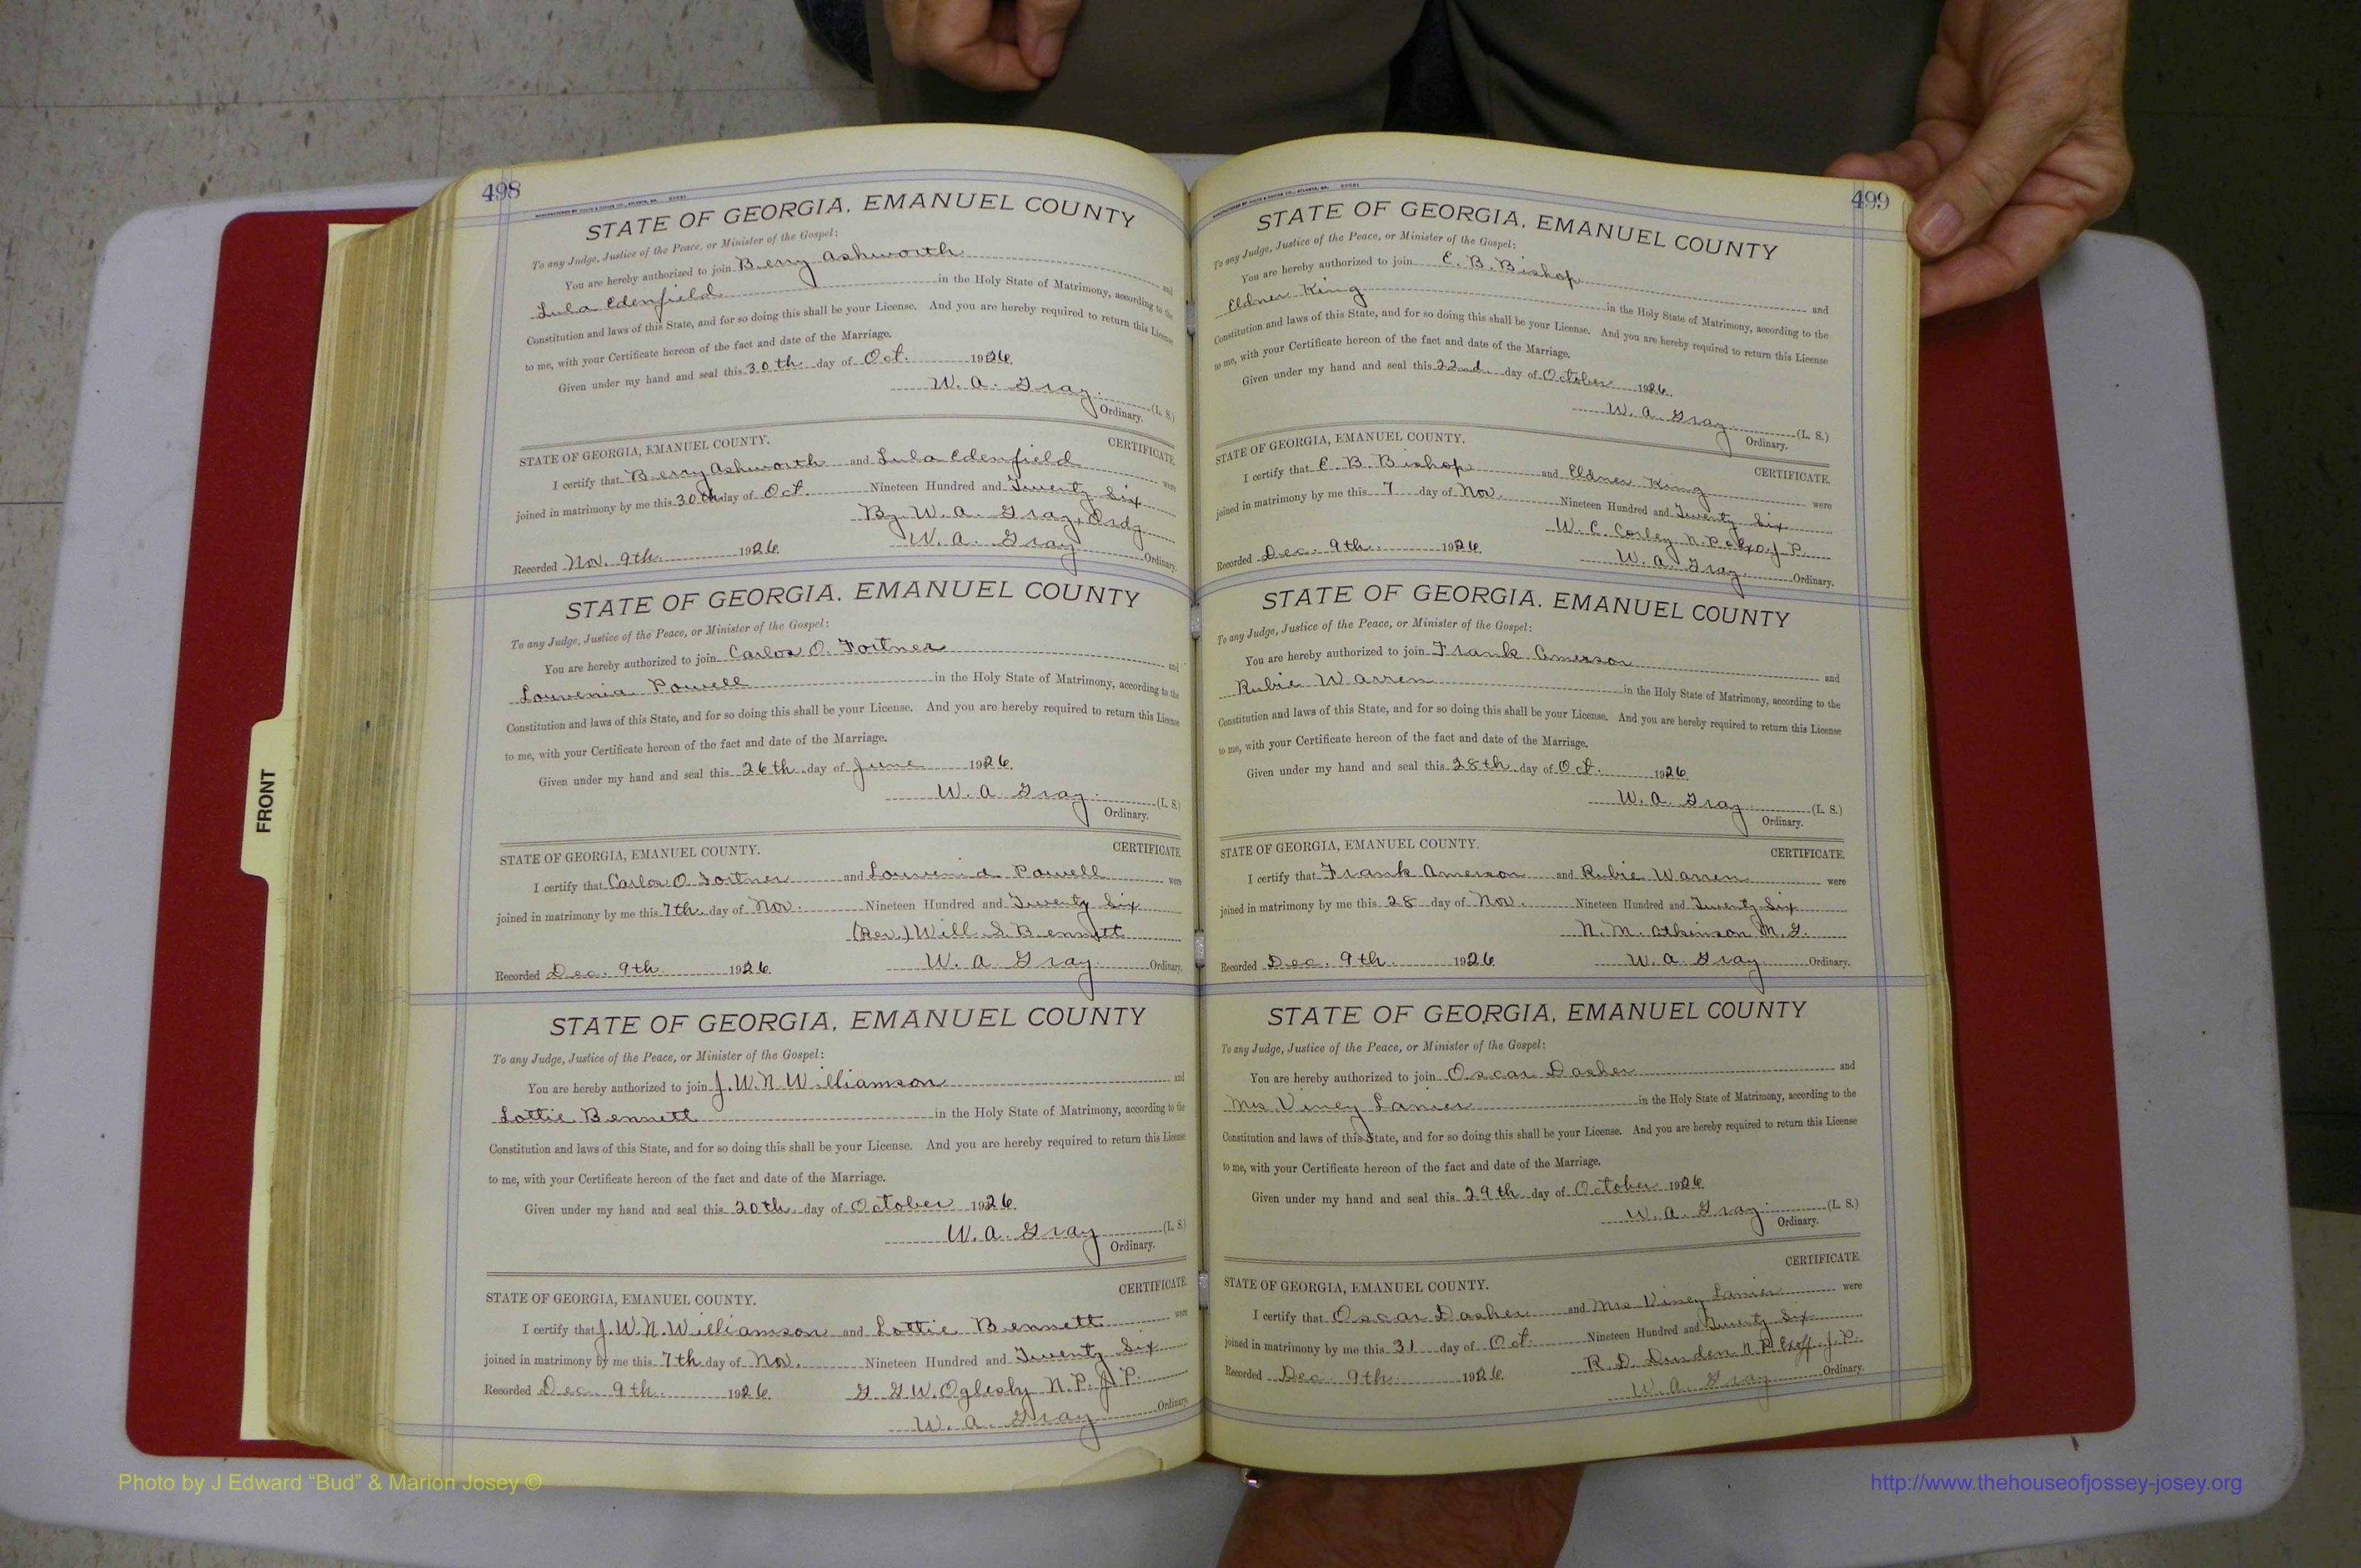 498
STATE OF GEORGIA, EMANUEL COUNTY
To any Judge, Justice of the Peace, or Minister of the Gospel:
You are hereby authorized to join Berry Ashworth and
Lula Edenfield in the Holy State of Matrimony, according to the
Constitution and laws of this State, and for so doing this shall be your License. And you are hereby required to return this License
to me, with your Certificate hereon of the fact and date of the Marriage.
Given under my hand and seal this 30th day of Oct. 1926.
W. A. Gray. (L. S.)
Ordinary.
STATE OF GEORGIA, EMANUEL COUNTY. CERTIFICATE
I certify that Berry Ashworth and Lula Edenfield were
joined in matrimony by me this 30th day of Oct. Nineteen Hundred and Twenty Six
By W. A. Gray, Ordy.
Recorded Nov. 9th. 1926. W. A. Gray Ordinary.
STATE OF GEORGIA, EMANUEL COUNTY
To any Judge, Justice of the Peace, or Minister of the Gospel:
You are hereby authorized to join Carlos O. Fortner and
Louvenia Powell in the Holy State of Matrimony, according to the
Constitution and laws of this State, and for so doing this shall be your License. And you are hereby required to return this License
to me, with your Certificate hereon of the fact and date of the Marriage.
Given under my hand and seal this 26th day of June 1926.
W. A. Gray. (L. S.)
Ordinary.
STATE OF GEORGIA, EMANUEL COUNTY. CERTIFICATE
I certify that Carlos O. Fortner and Louvenia Powell were
joined in matrimony by me this 7th. day of Nov. Nineteen Hundred and Twenty Six
(Rev.) Will S. Bennett
Recorded Dec. 9th 1926. W. A. Gray. Ordinary.
STATE OF GEORGIA, EMANUEL COUNTY
To any Judge, Justice of the Peace, or Minister of the Gospel:
You are hereby authorized to join J. W. N. Williamson and
Lottie Bennett in the Holy State of Matrimony, according to the
Constitution and laws of this State, and for so doing this shall be your License. And you are hereby required to return this License
to me, with your Certificate hereon of the fact and date of the Marriage.
Given under my hand and seal this 20th day of October 1926.
W. A. Gray (L. S.)
Ordinary.
CERTIFICATE
STATE OF GEORGIA, EMANUEL COUNTY.
I certify that J. W. N. Williamson and Lottie Bennett were
joined in matrimony by me this 7th day of Nov. Nineteen Hundred and Twenty Six
Recorded Dec. 9th. 1926. G. W. Oglesby N. P. J. P.
W. A. Gray Ordinary.
499
STATE OF GEORGIA, EMANUEL COUNTY
To any Judge, Justice of the Peace, or Minister of the Gospel:
You are hereby authorized to join E. B. Bishop and
Eldner King in the Holy State of Matrimony, according to the
Constitution and laws of this State, and for so doing this shall be your License. And you are hereby required to return this License
to me, with your Certificate hereon of the fact and date of the Marriage.
Given under my hand and seal this 22nd. day of October 1926.
W. A. Gray (L. S.)
Ordinary.
STATE OF GEORGIA, EMANUEL COUNTY.
CERTIFICATE.
I certify that E. B. Bishop and Eldner King were
joined in matrimony by me this 7 day of Nov. Nineteen Hundred and Twenty Six
W. C. Corley N. P. & Exo. J. P.
Recorded Dec. 9th. 1926. W. A. Gray. Ordinary.
STATE OF GEORGIA, EMANUEL COUNTY
To any Judge, Justice of the Peace, or Minister of the Gospel:
You are hereby authorized to join Frank Amerson and
Rubie Warren in the Holy State of Matrimony, according to the
Constitution and laws of this State, and for so doing this shall be your License. And you are hereby required to return this License
to me, with your Certificate hereon of the fact and date of the Marriage.
Given under my hand and seal this 28th day of Oct. 1926
W. A. Gray (L. S.)
Ordinary.
STATE OF GEORGIA, EMANUEL COUNTY.
CERTIFICATE.
I certify that Frank Amerson and Rubie Warren were
joined in matrimony by me this 28 day of Nov. Nineteen Hundred and Twenty Six
N. M. Atkinson M. G.
Recorded Dec. 9th. 1926 W. A. Gray Ordinary.
STATE OF GEORGIA, EMANUEL COUNTY
To any Judge, Justice of the Peace, or Minister of the Gospel:
You are hereby authorized to join Oscar Dasher and
Mrs. Viney Lanier in the Holy State of Matrimony, according to the
Constitution and laws of this State, and for so doing this shall be your License. And you are hereby required to return this License
to me, with your Certificate hereon of the fact and date of the Marriage.
Given under my hand and seal this 29th day of October 1926
W. A. Gray. (L. S.)
Ordinary.
CERTIFICATE.
STATE OF GEORGIA, EMANUEL COUNTY.
I certify that Oscar Dasher and Mrs. Viney Lanier were
joined in matrimony by me this 31 day of Oct. Nineteen Hundred and Twenty Six
Recorded Dec. 9th. 1926. R. D. Durden N. P. Exoff. J. P.
W. A. Gray Ordinary.
FRONT
Photo by J Edward “Bud” & Marion Josey ©
http://www.thehouseofjossey-josey.org